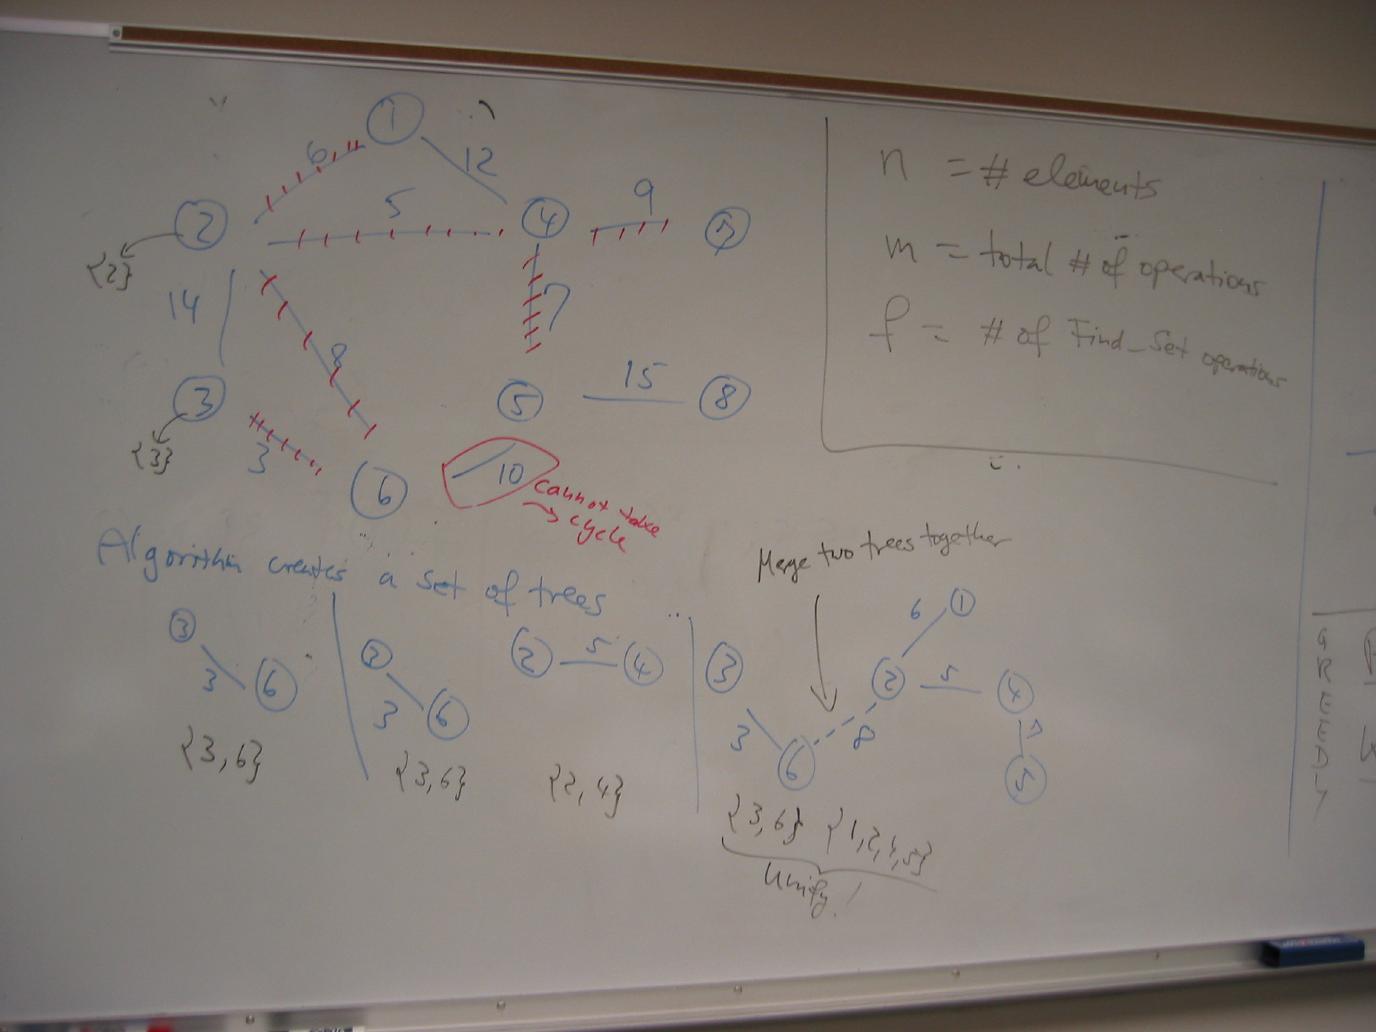 1
6
12
2
5
4
9
7
{2}
14
8
7
3
5
15
8
{3}
3
6
10
cannot take
→ cycle
n = # elements
m = total # of operations
f = # of Find_Set operations
Algorithm creates a set of trees
3
3
6
{3,6}
3
3
6
{3,6}
2
5
4
{2,4}
Merge two trees together
6
1
3
2
5
4
3
8
7
6
5
{3,6} {1,2,4,5}
Unify!
GREEDLY